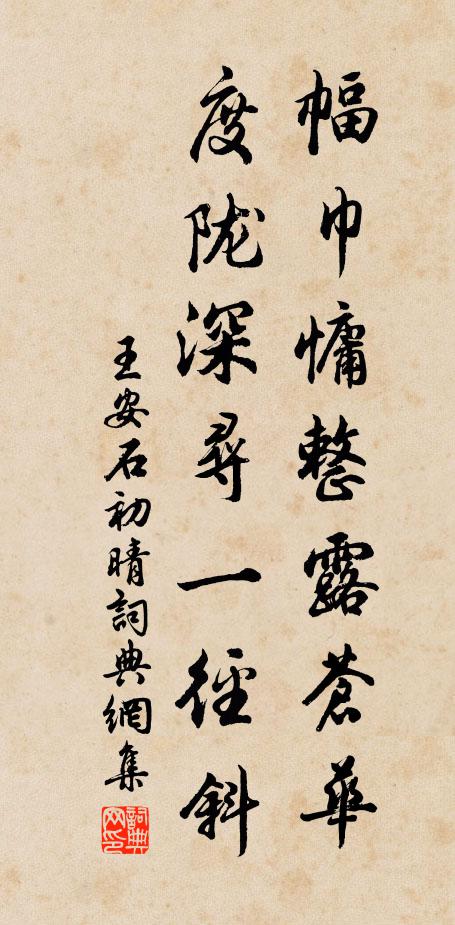 幅巾慵整露蒼華
度陇深尋一徑斜
王安石初晴詞典網集
詞典网印